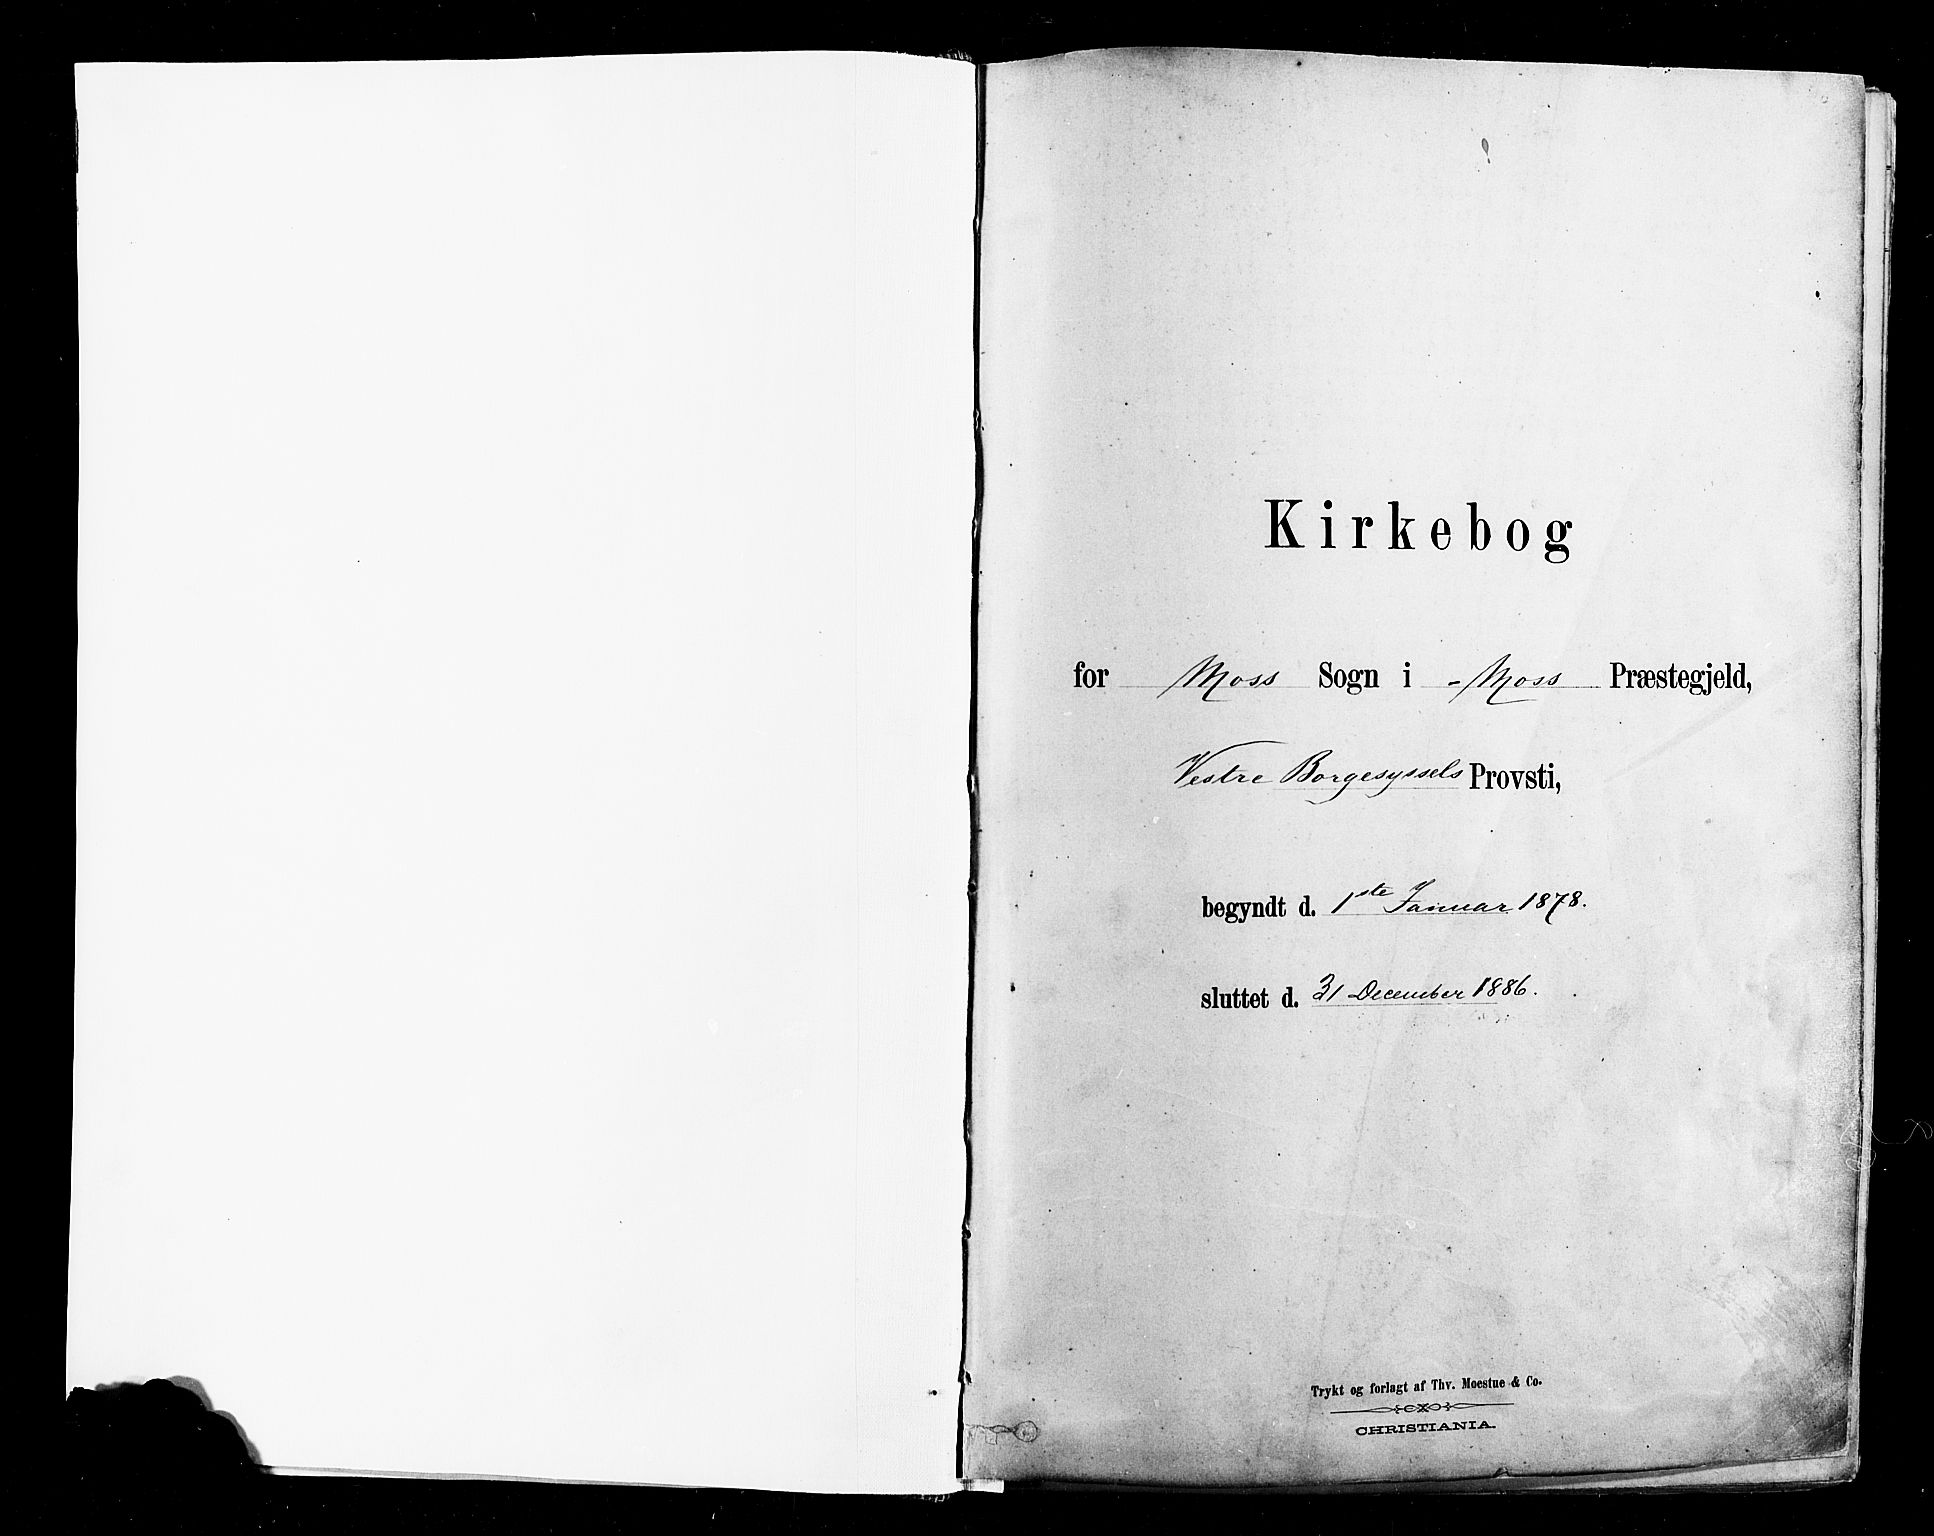 Kirkebog
for Moss Sogn i - Moss Præstegjeld,
Vestre Borgesyssels Provsti,
begyndt d. 1ste Januar 1878.
sluttet d. 31 December 1886.
Trykt og forlagt af Thv. Moestue & Co.
CHRISTIANIA.